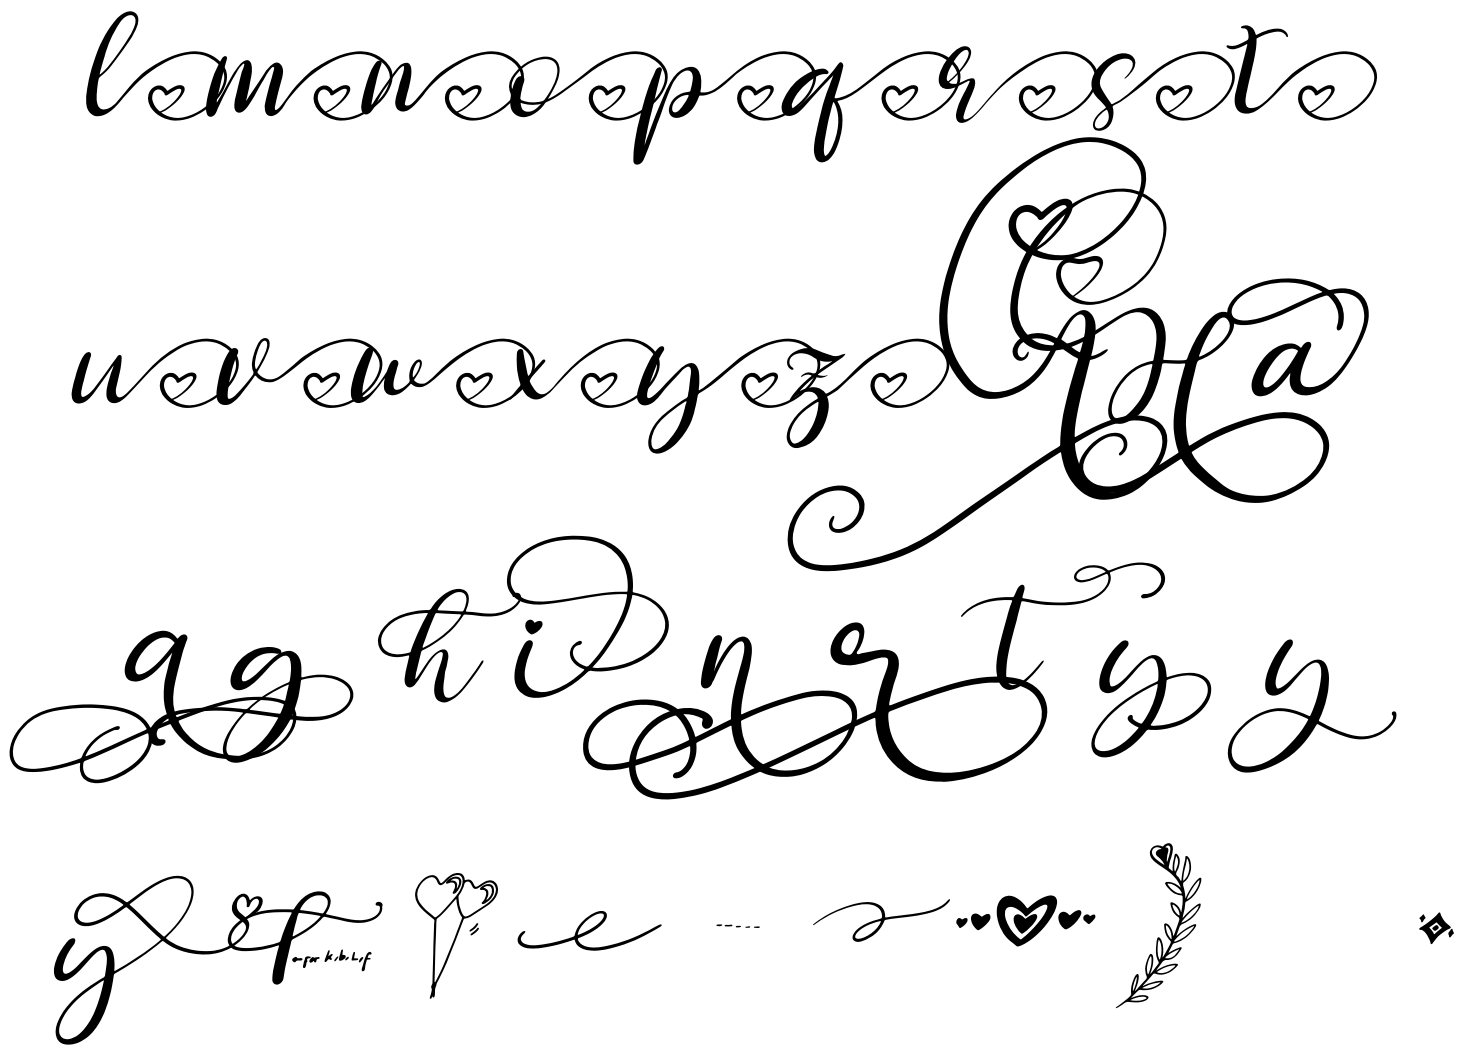 l m n o p q r s t
u v w x y z a
a g h i n r t y y
y